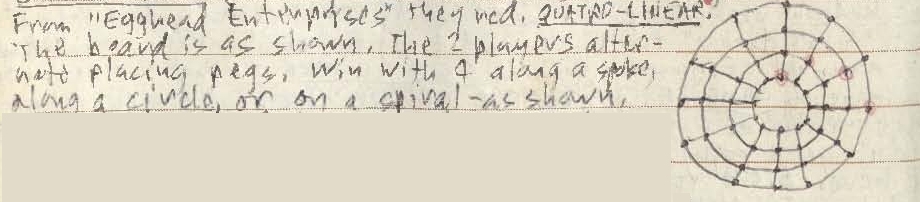 From "Egghead Enterprises" they ned. QUATRO-LINEAR.
The board is as shown. The 2 players alter-
nate placing pegs. Win with 4 along a spoke,
along a circle, or on a spiral - as shown.